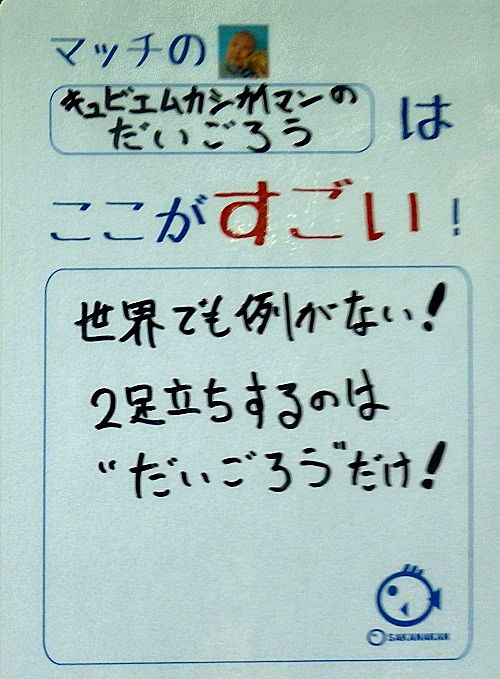 マッチの
キュビエムカシカイマンの
だいごろう
は
ここがすごい!
世界でも例がない!
2足立ちするのは
“だいごろう”だけ!
SAKANAKAN